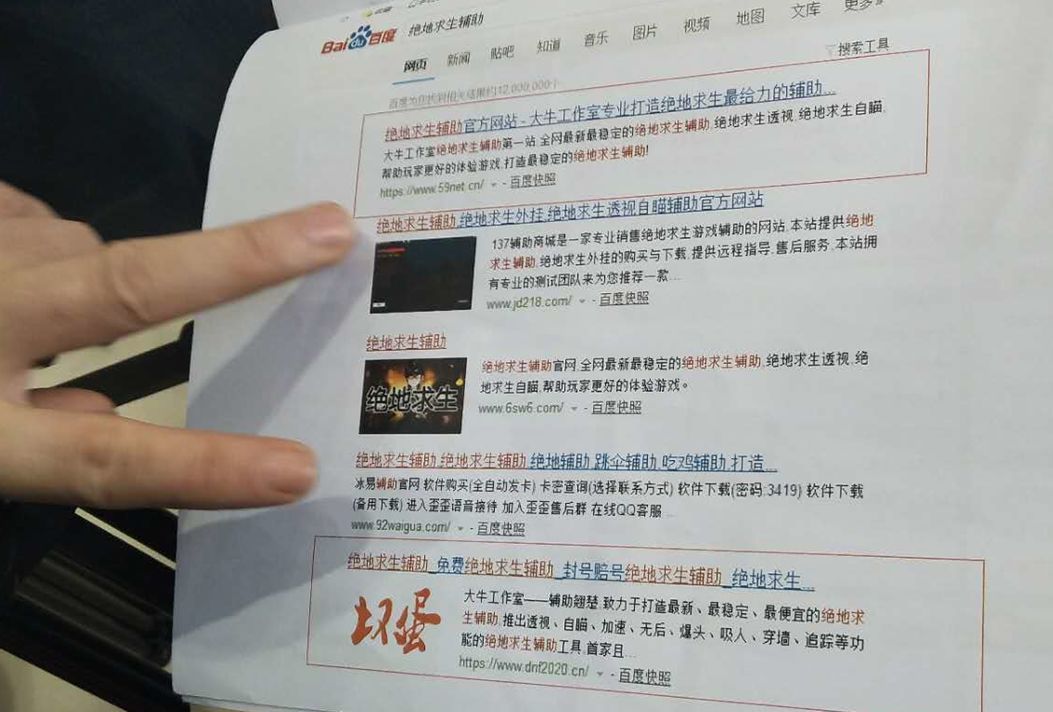 Baidu百度 绝地求生辅助
网页 新闻 贴吧 知道 音乐 图片 视频 地图 文库 更多»
百度为您找到相关结果约12,000,000个
搜索工具
绝地求生辅助官方网站 - 大牛工作室专业打造绝地求生最给力的辅助...
大牛工作室绝地求生辅助第一站,全网最新最稳定的绝地求生辅助,绝地求生透视,绝地求生自瞄,
帮助玩家更好的体验游戏,打造最稳定的绝地求生辅助!
https://www.59net.cn/ - 百度快照
绝地求生辅助,绝地求生外挂,绝地求生透视自瞄辅助官方网站
137辅助商城是一家专业销售绝地求生游戏辅助的网站,本站提供绝地
求生辅助,绝地求生外挂的购买与下载,提供远程指导,售后服务,本站拥
有专业的测试团队来为您推荐一款...
www.jd218.com/ - 百度快照
绝地求生辅助
绝地求生
绝地求生辅助官网,全网最新最稳定的绝地求生辅助,绝地求生透视,绝
地求生自瞄,帮助玩家更好的体验游戏。
www.6sw6.com/ - 百度快照
绝地求生辅助,绝地求生辅助,绝地辅助,跳伞辅助,吃鸡辅助,打造...
冰易辅助官网 软件购买(全自动发卡) 卡密查询(选择联系方式) 软件下载(密码:3419) 软件下载
(备用下载) 进入歪歪语音接待 加入歪歪售后群 在线QQ客服...
www.92waigua.com/ - 百度快照
绝地求生辅助_免费绝地求生辅助_封号赔号绝地求生辅助_绝地求生...
坏蛋
大牛工作室——辅助翘楚,致力于打造最新、最稳定、最便宜的绝地求
生辅助,推出透视、自瞄、加速、无后、爆头、吸人、穿墙、追踪等功
能的绝地求生辅助工具,首家且...
https://www.dnf2020.cn/ - 百度快照